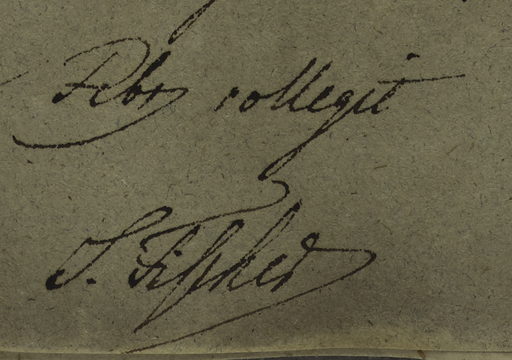 Febr collegit
S. Fisscher